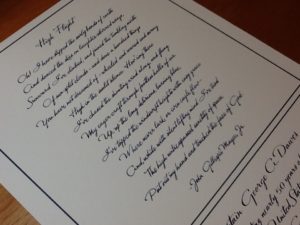 High Flight
Oh! I have slipped the surly bonds of earth
And danced the skies on laughter-silvered wings;
Sunward I've climbed and joined the tumbling mirth
Of sun-split clouds and done a hundred things
You have not dreamed of wheeled and soared and swung
High in the sunlit silence. Hov'ring there
I've chased the shouting wind along and flung
My eager craft through footless halls of air.
Up, up the long delirious burning blue,
I've topped the windswept heights with easy grace
Where never lark, or even eagle flew;
And while with silent lifting mind I've trod
The high untrespassed sanctity of space
Put out my hand and touched the face of God
John Gillespie Magee Jr.
George C.
nearly 50 years
United